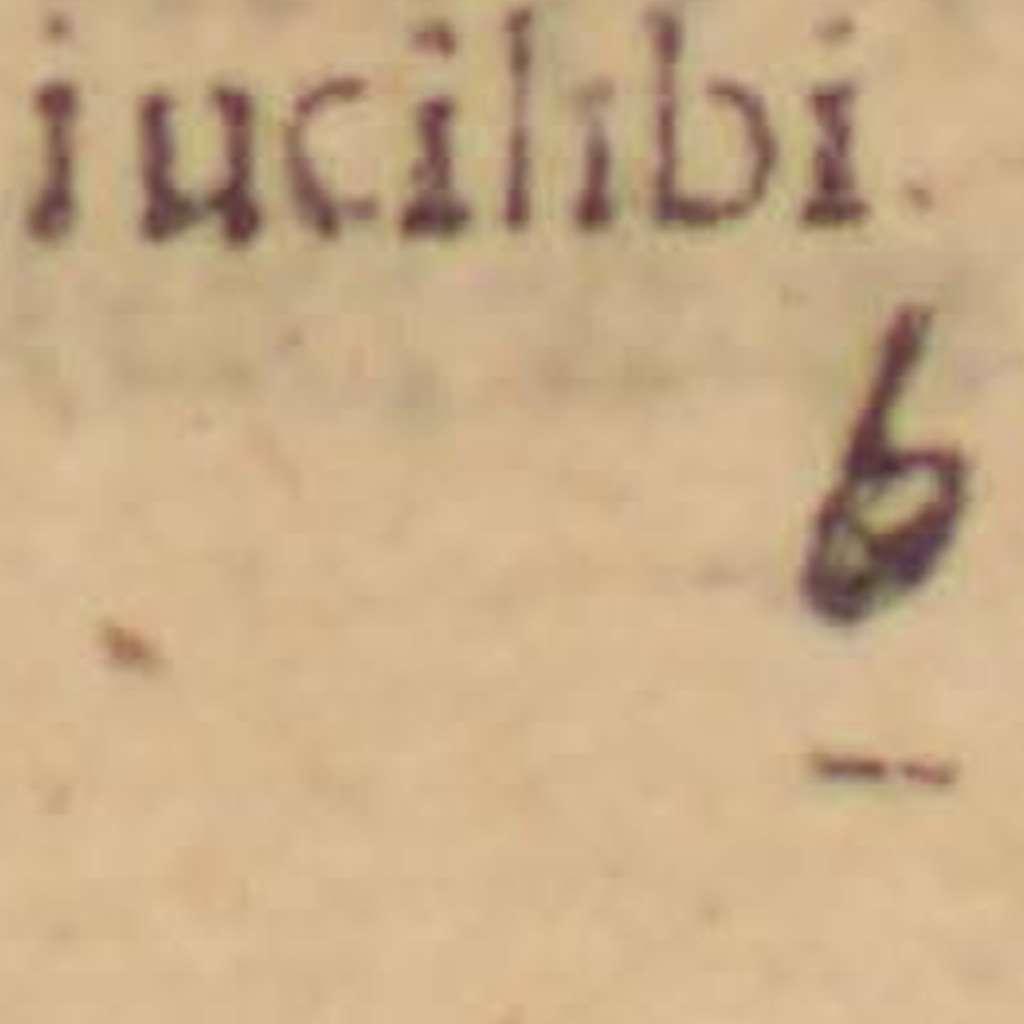 iucilibi.
6